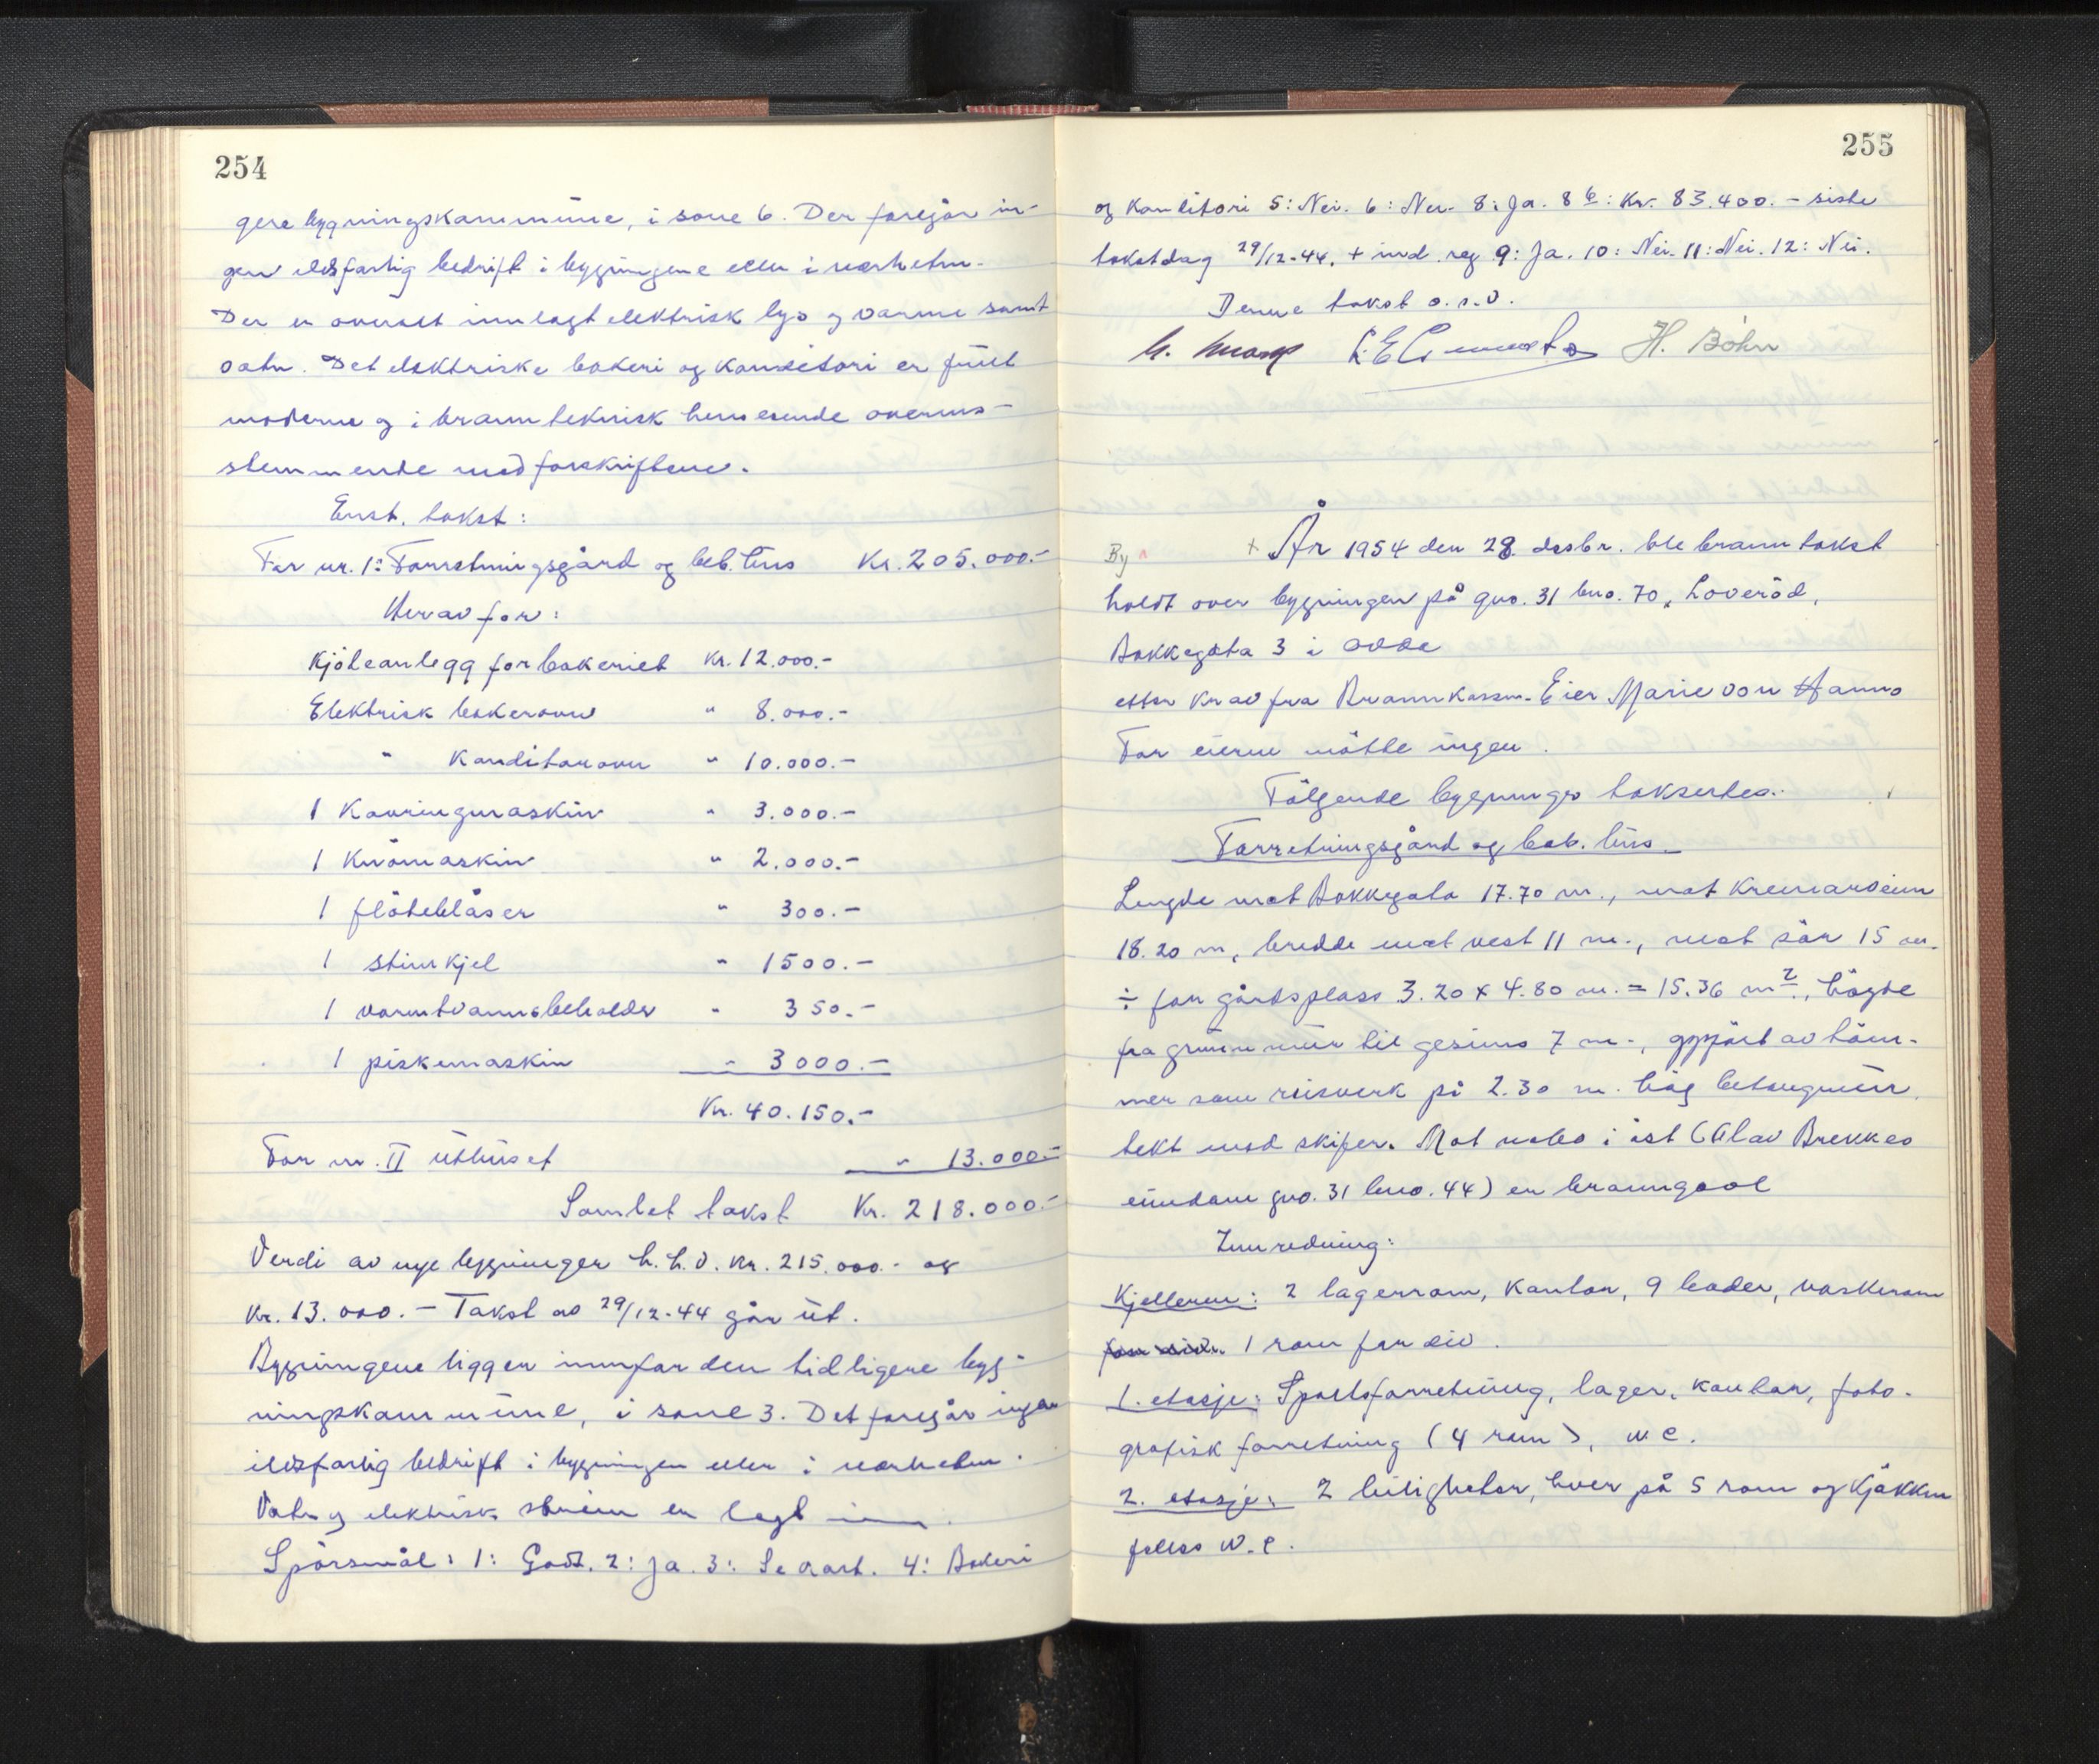 254
gere bygningskommune, i sone 6. Der foregår in-
gen ildsfarlig bedrift i bygningene eller i nærheten.
Der er overalt innlagt elektrisk lys og varme samt
vatn. Det elektriske bakeri og konditori er fullt
moderne og i brannteknisk henseende overens-
stemmende med forskriftene.
Enst. takst:
For nr. 1: Forretningsgård og beb. hus Kr. 205.000.-
Herav for:
Kjöleanlegg for bakeriet Kr. 12.000.-
Elektrisk bakerovn " 8.000.-
" Konditorovn " 10.000.-
1 Kavringmaskin " 3.000.-
1 Knömaskin " 2.000.-
1 flöteblåser " 300.-
1 stimkjel " 1500.-
1 varmtvannsbeholder " 350.-
1 piskemaskin " 3000.-
Kr. 40.150.-
For nr. II Uthuset " 13.000.-
Samlet takst Kr. 218.000.-
Verdi av nye bygninger h.h.v. Kr. 215.000.- og
Kr. 13.000.- Takst av 29/12-44 går ut.
Bygningene ligger innfor den tidligere byg-
ningskommune, i sone 3. Det foregår ingen
ildsfarlig bedrift i bygningen eller i nærheten.
Vatn og elektrisk strøm er lagt inn.
Spörsmål: 1: Godt. 2: Ja. 3: Se takst. 4: Bakeri
255
og Konditori 5: Nei. 6: Nei. 8: Ja. 8 b: Kr. 83.400.- siste
takstdag 29/12-44. + ind. reg 9: Ja. 10: Nei. 11: Nei. 12: Nei.
Denne takst o.s.v.
H. Bøhn
By + År 1954 den 28. desbr. ble branntakst
holdt over bygningen på gno. 31 bno. 70, Loveröd,
Bakkegata 3 i Odda
etter krav fra Brannkassen. Eier Marie von Hanno
For eieren mötte ingen.
Fölgende bygninger takserdes:
Forretningsgård og beb. hus.
Lengde mot Bakkegata 17.70 m., mot Kremarveien
18.20 m, bredde mot vest 11 m., mot sör 15 m.
÷ for gårdsplass 3.20 x 4.80 m. = 15.36 m2., högde
fra grunnmur til gesims 7 m., oppfört av töm-
mer som reisverk på 2.30 m. hög betongmur,
tekt med skifer. Mot nabo i öst (Olav Brekkes
eiendom gno. 31 bno. 44) er branngavl
Innredning:
Kjelleren: 2 lagerrom, kontor, 9 boder, vaskerom
for div. 1 rom for div.
1. etasje: Sportsforretning, lager, kontor, foto-
grafisk forretning (4 rum), w c.
2. etasje: 2 leiligheter, hver på 5 rom og kjökken
felles w.c.